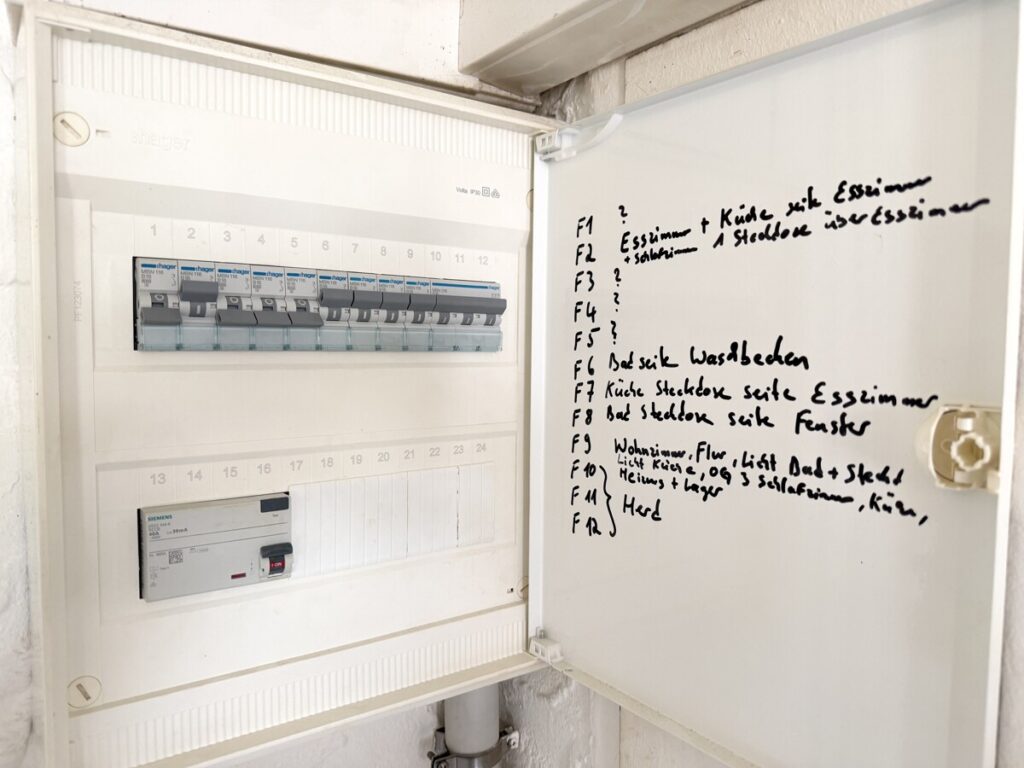 hager
Volta IP30
1 2 3 4 5 6 7 8 9 10 11 12
hager hager hager hager hager hager hager hager hager hager
MBN 116
B16
13 14 15 16 17 18 19 20 21 22 23 24
SIEMENS
40A
30mA
I-ON
F1 ?
F2 Esszimmer + Küche seite Esszimmer
+ Schlafzimm 1 Steckdose über Esszimmer
F3 ?
F4 ?
F5 ?
F6 Bad seite Waschbecken
F7 Küche Steckdose seite Esszimmer
F8 Bad Steckdose seite Fenster
F9 Wohnzimmer, Flur, Licht Bad + Steckd
Licht Küche, OG 3 Schlafzimmer, Küche,
Heizung + Lager
F10
F11 Herd
F12